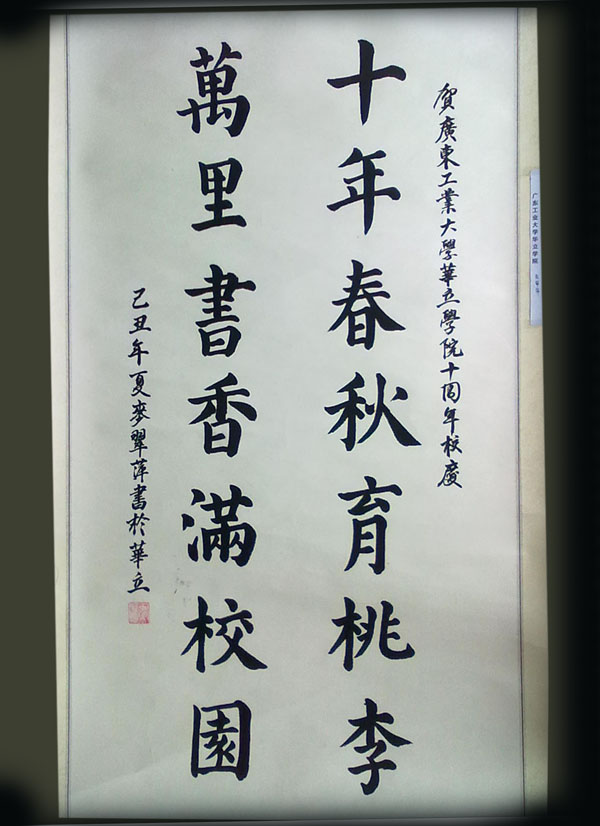 广东工业大学华立学院
贺廣東工業大學華立學院十周年校慶
十年春秋育桃李
萬里書香滿校園
己丑年夏麥翠萍書於華立